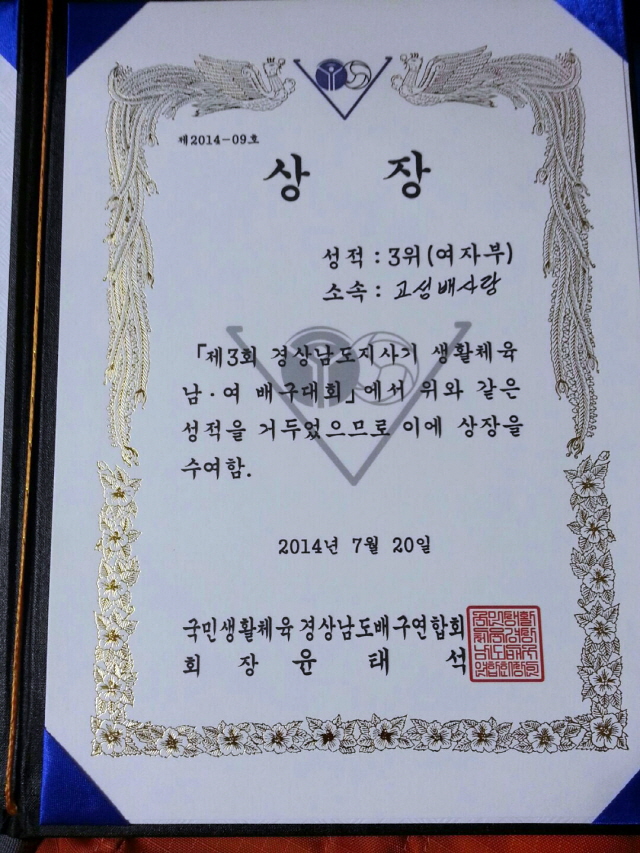 제2014-09호
상 장
성적 : 3위(여자부)
소속 : 고성배사랑
「제3회 경상남도지사기 생활체육
남·여 배구대회」에서 위와 같은
성적을 거두었으므로 이에 상장을
수여함.
2014년 7월 20일
국민생활체육경상남도배구연합회
회 장 윤 태 석